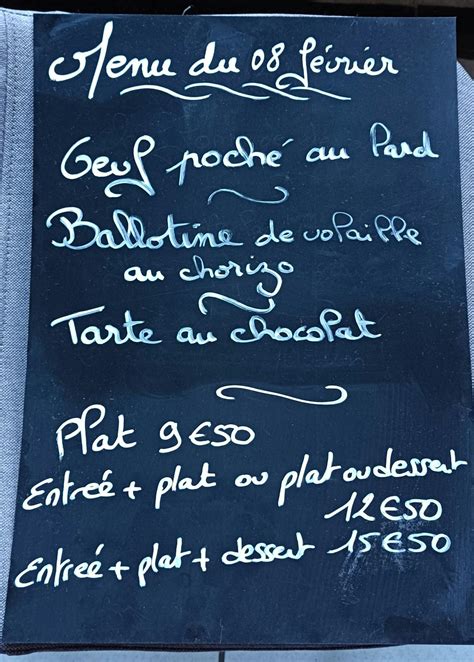 Menu du 08 février
Oeuf poché au Lard
Ballotine de volaille
au chorizo
Tarte au chocolat
Plat 9€50
Entreé + plat ou plat ou dessert
12€50
Entreé + plat + dessert 15€50